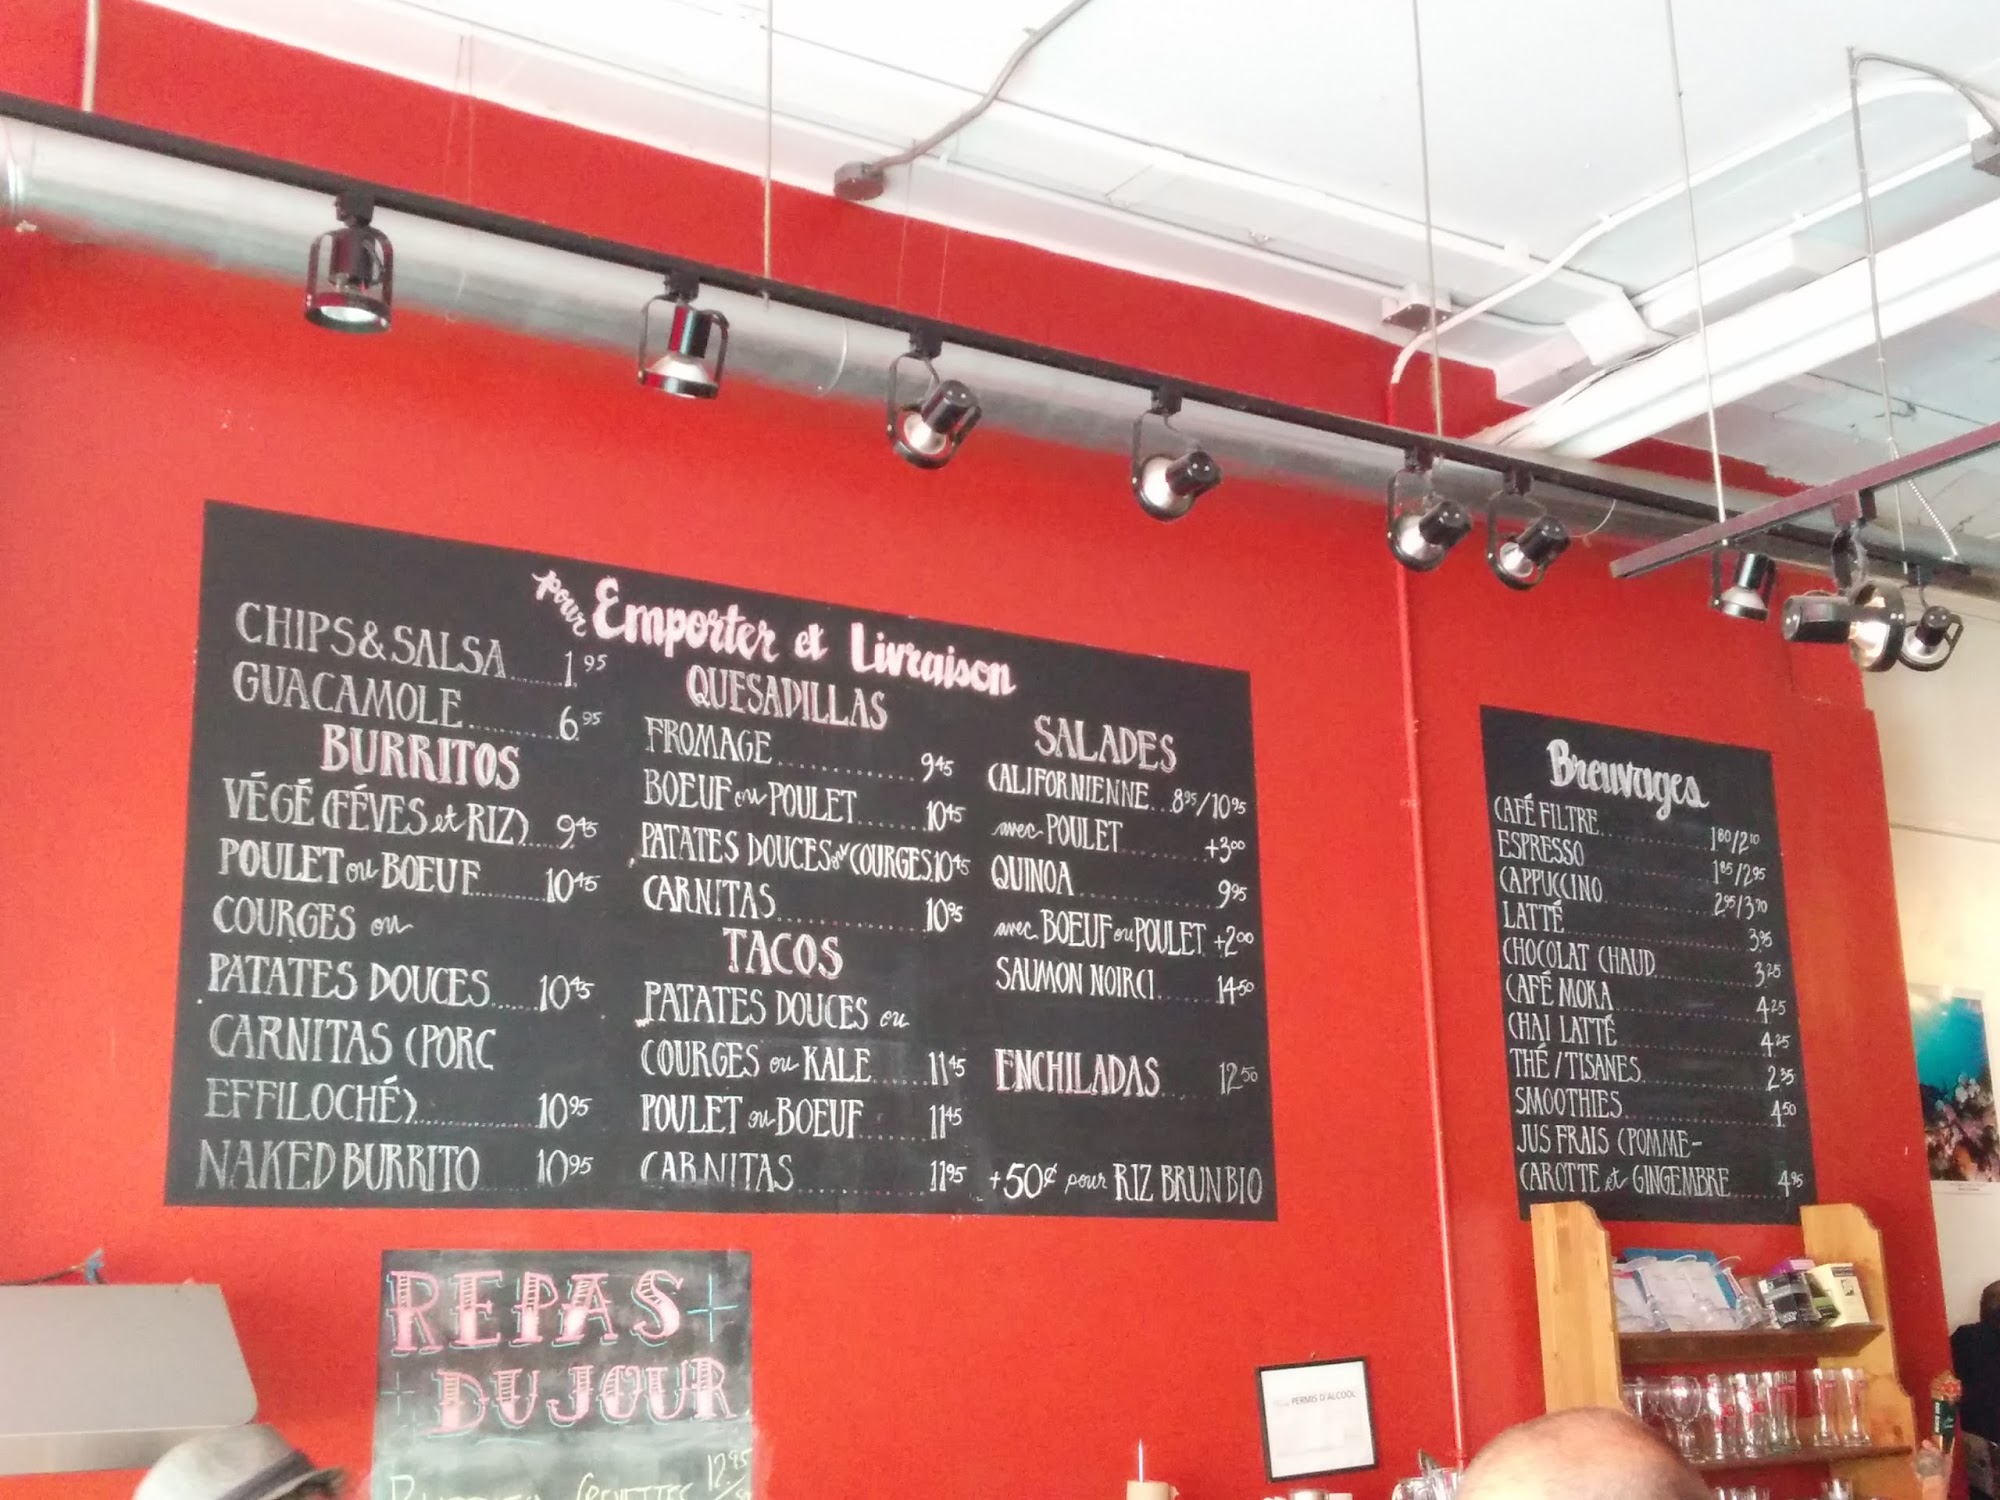 pour Emporter et Livraison
CHIPS & SALSA......1.95
GUACAMOLE..........6.95
BURRITOS
VÉGÉ (FÉVES et RIZ)...9.45
POULET ou BOEUF.......10.45
COURGES ou
PATATES DOUCES......10.45
CARNITAS (PORC
EFFILOCHÉ)...........10.95
NAKED BURRITO......10.95
QUESADILLAS
FROMAGE..............9.45
BOEUF ou POULET.......10.45
PATATES DOUCES ou COURGES.10.45
CARNITAS..............10.95
TACOS
PATATES DOUCES ou
COURGES ou KALE......11.45
POULET ou BOEUF......11.45
CARNITAS.............11.95
SALADES
CALIFORNIENNE...8.95/10.95
avec POULET..........+3.00
QUINOA...............9.95
avec BOEUF ou POULET +2.00
SAUMON NOIRCI......14.50
ENCHILADAS......12.50
+50¢ pour RIZ BRUN BIO
Breuvages
CAFÉ FILTRE..........1.80/2.10
ESPRESSO.............1.85/2.95
CAPPUCCINO...........2.95/3.70
LATTÉ................3.95
CHOCOLAT CHAUD.......3.25
CAFÉ MOKA............4.25
CHAI LATTÉ...........4.25
THÉ / TISANES........2.35
SMOOTHIES............4.50
JUS FRAIS (POMME-
CAROTTE et GINGEMBRE....4.95
REPAS
DU JOUR
CREVETTES 12.95
PERMIS D'ALCOOL